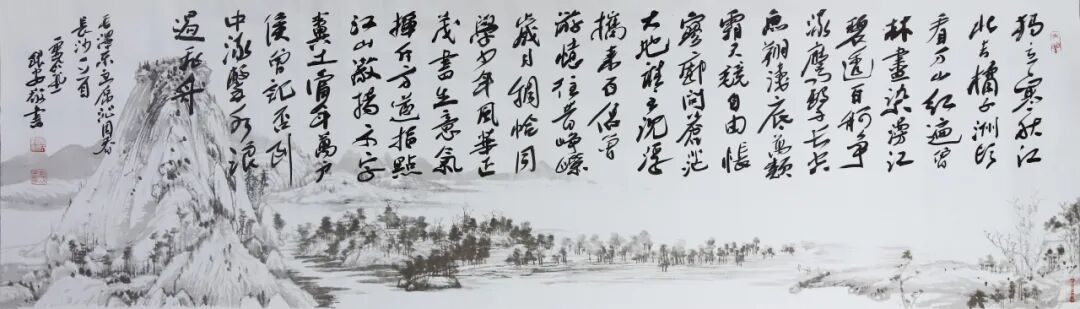 独立寒秋江
北去橘子洲头
看万山红遍层
林盡染漫江
碧透百舸争
流鹰擊长空
鱼翔浅底萬類
霜天竞自由怅
寥廓问苍茫
大地谁主沉浮
携来百侣曾
游憶往昔峥嵘
岁月稠恰同
学少年风华正
茂书生意气
挥斥方遒指点
江山激扬文字
粪土當年萬户
侯曾记否到
中流擊水浪
遏飛舟
毛澤东沁园春
长沙一首
书